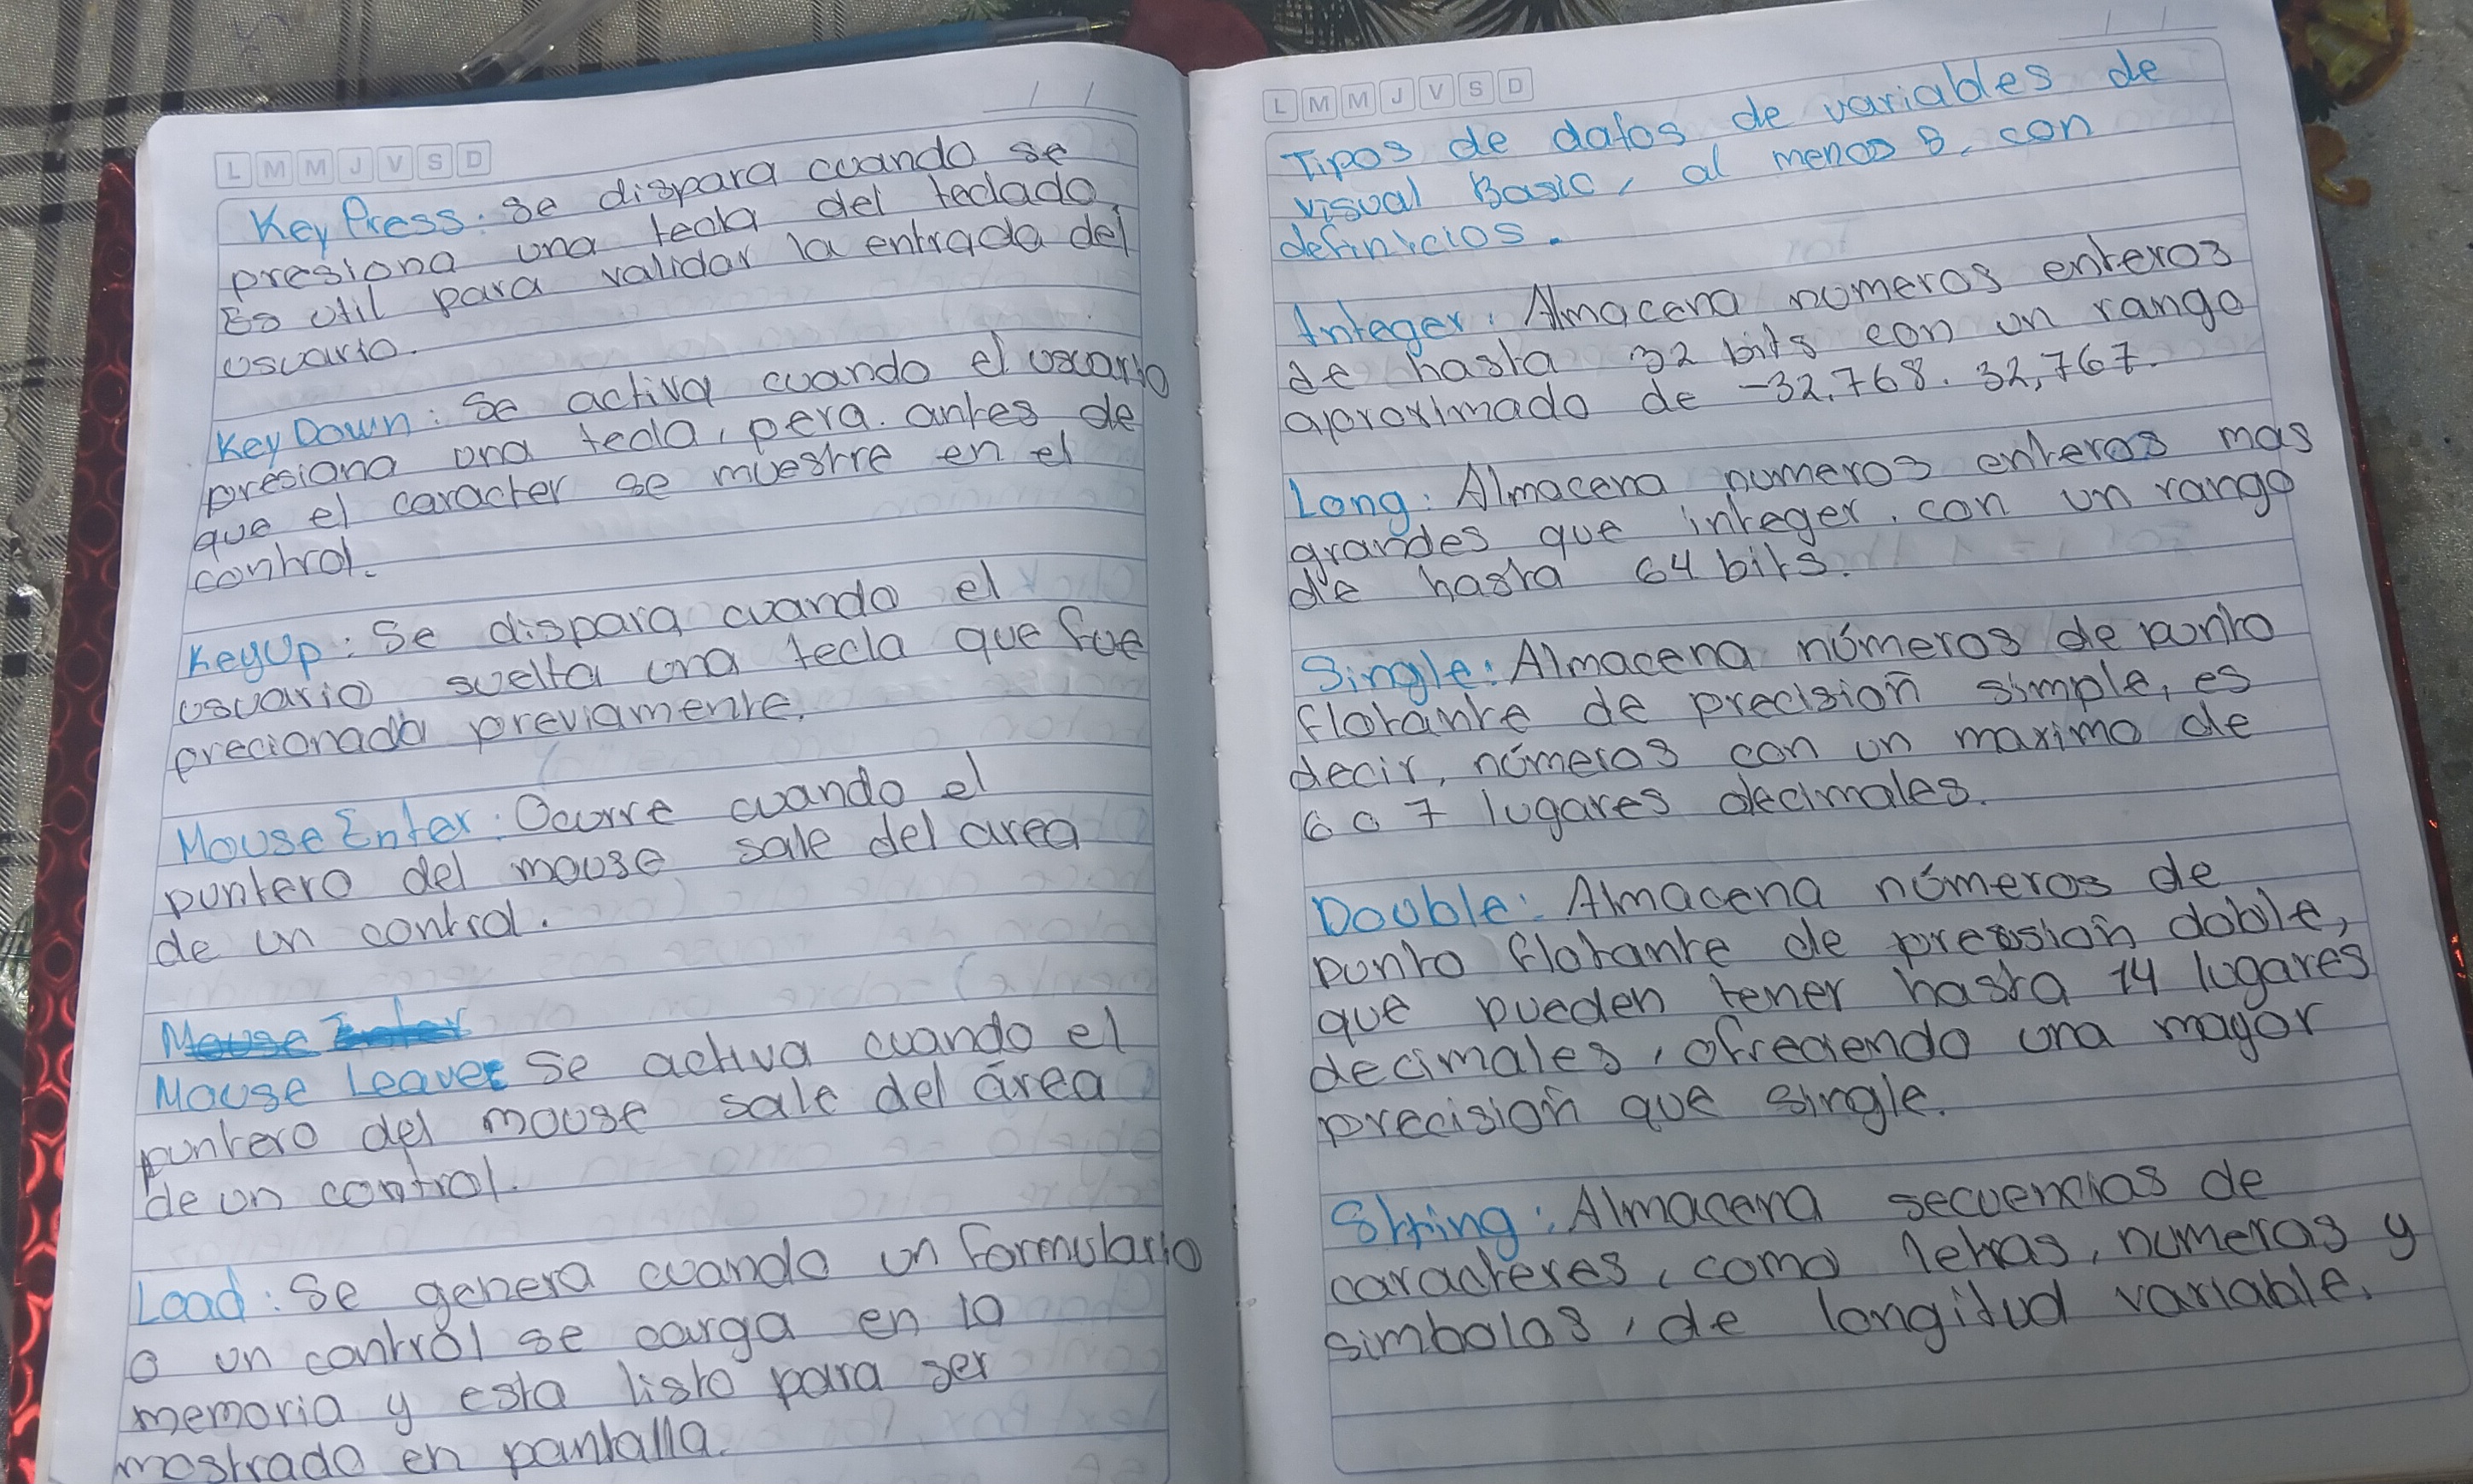 L M M J V S D
Key Press: Se dispara cuando se
presiona una tecla del teclado.
Es util para validar la entrada del
usuario.
Key Down: Se activa cuando el usuario
presiona una tecla, pera. antes de
que el caracter se muestre en el
control.
KeyUp: Se dispara cuando el
usuario suelta una tecla que fue
precionada previamente.
Mouse Enter: Ocurre cuando el
puntero del mouse sale del area
de un control.
Mouse Enter
Mouse Leave: Se activa cuando el
puntero del mouse sale del área
de un control.
Load: Se genera cuando un formulario
o un control se carga en la
memoria y esta listo para ser
mostrado en pantalla.
L M M J V S D
Tipos de datos de variables de
visual Basic, al menos 8, con
definicios.
Integer: Almacena numeros enteros
de hasta 32 bits con un rango
aproximado de -32,768. 32,767.
Long: Almacena numeros enteros mas
grandes que integer, con un rango
de hasta 64 bits.
Single: Almacena números de punto
flotante de precisión simple, es
decir, números con un maximo de
6 o 7 lugares decimales.
Double: Almacena números de
punto flotante de presisión doble,
que pueden tener hasta 14 lugares
decimales, ofreciendo una mayor
precisión que single.
String: Almacena secuencias de
caracteres, como letras, numeros y
simbolos, de longitud variable.